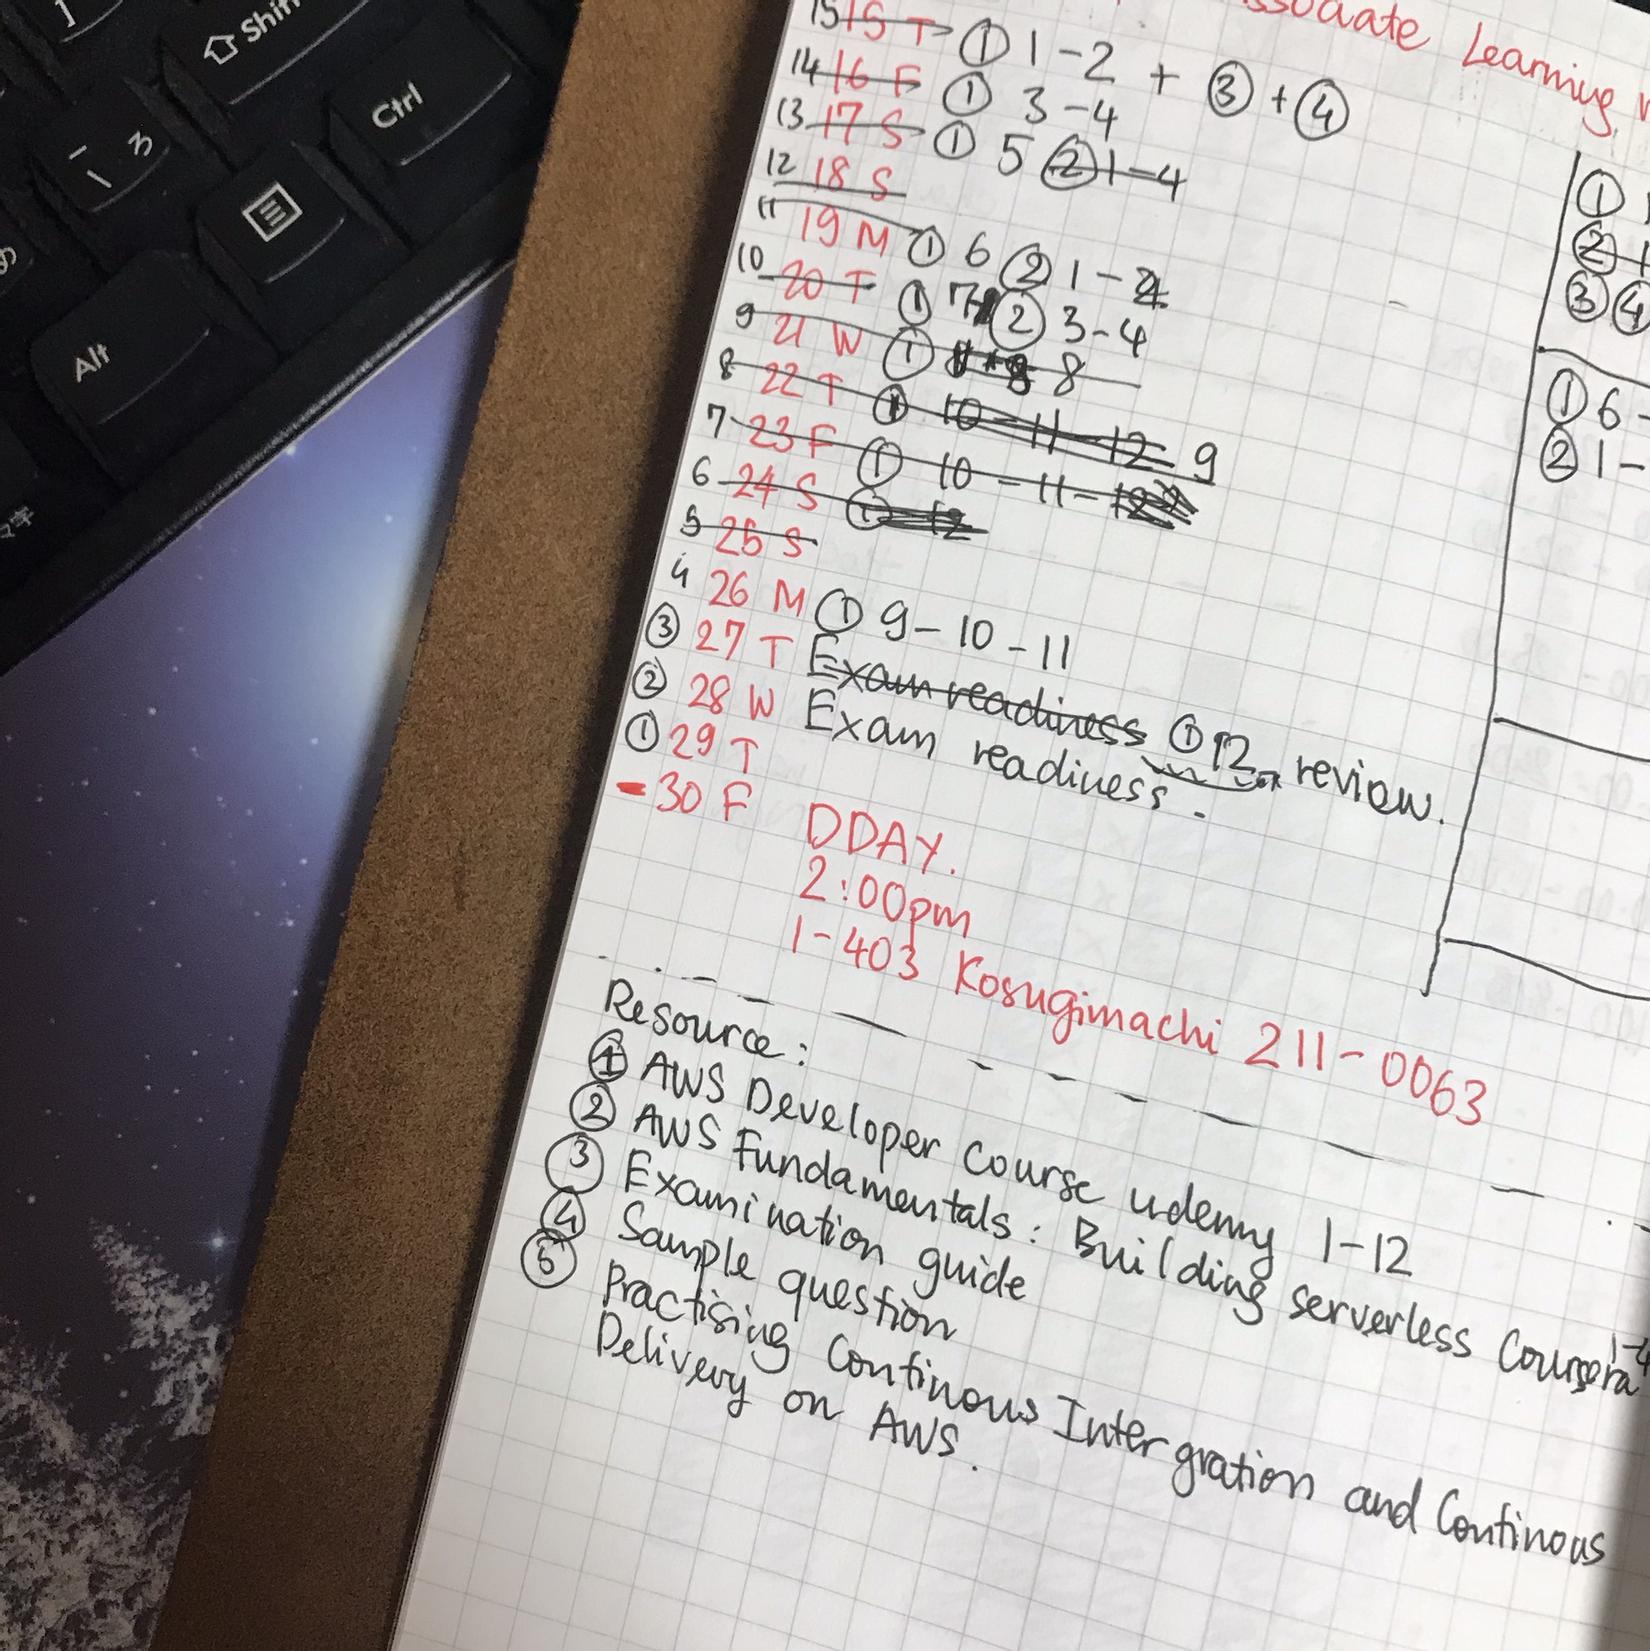 Shift
Ctrl
ろ
Alt
ssociate Learning
15 15 T ① 1-2 + ③ + ④
14 16 F ① 3-4
13 17 S ① 5 ② 1-4
12 18 S
11 19 M ① 6 ② 1-2
10 20 T ① 7 ② 3-4
9 21 W ① 8
8 22 T ① 10-11-12 9
7 23 F ① 10-11-12
6 24 S ① 12
5 25 S
4 26 M ① 9-10-11
③ 27 T Exam readiness ① 12 review.
② 28 W Exam readiness.
① 29 T
-30 F DDAY.
2:00pm
1-403 Kosugimachi 211-0063
Resource:
① AWS Developer Course udemy 1-12
② AWS Fundamentals: Building serverless Coursera 1-4
③ Examination guide
④ Sample question
⑤ Practising Continous Intergration and Continous
Delivery on AWS.
①
② 1
③ ④
① 6-
② 1-